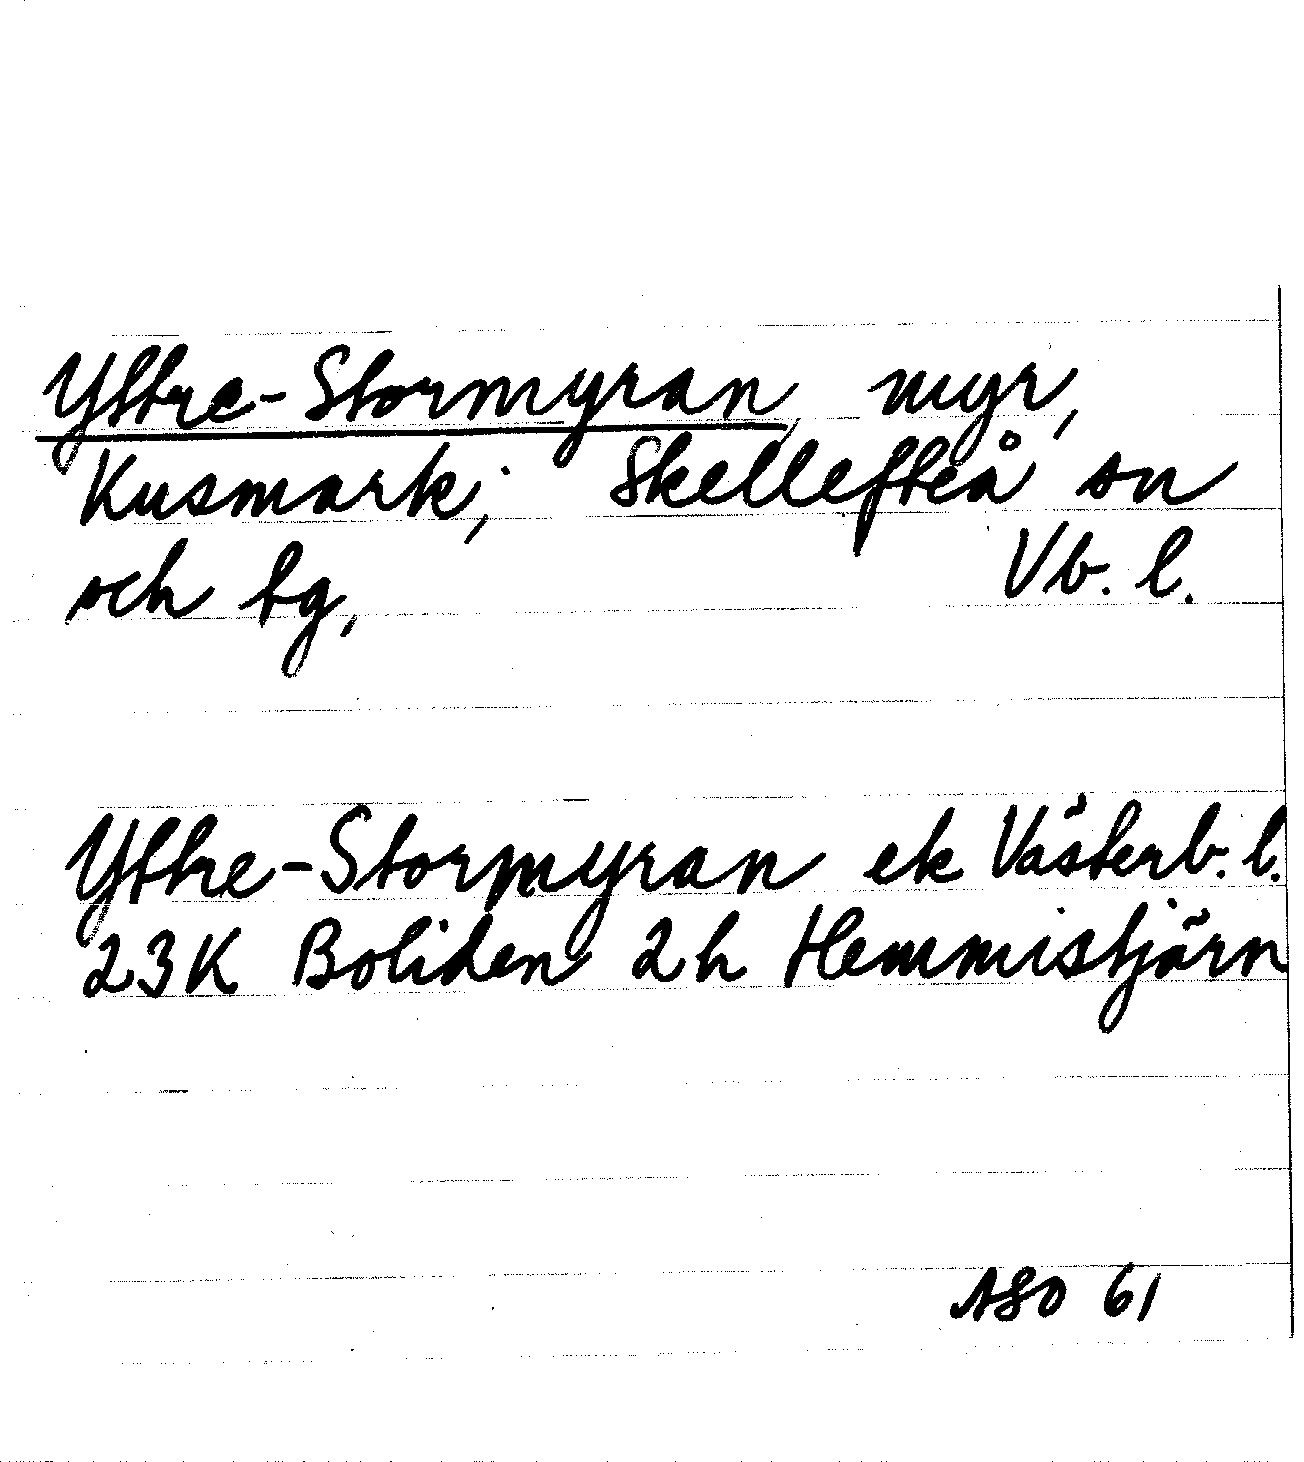 Yttre-Stormyran myr,
Kusmark; Skellefteå sn
och tg, Vb. l.
Yttre-Stormyran ek Västerb. l.
23K Boliden 2h Hemmistjärn
ASO 61